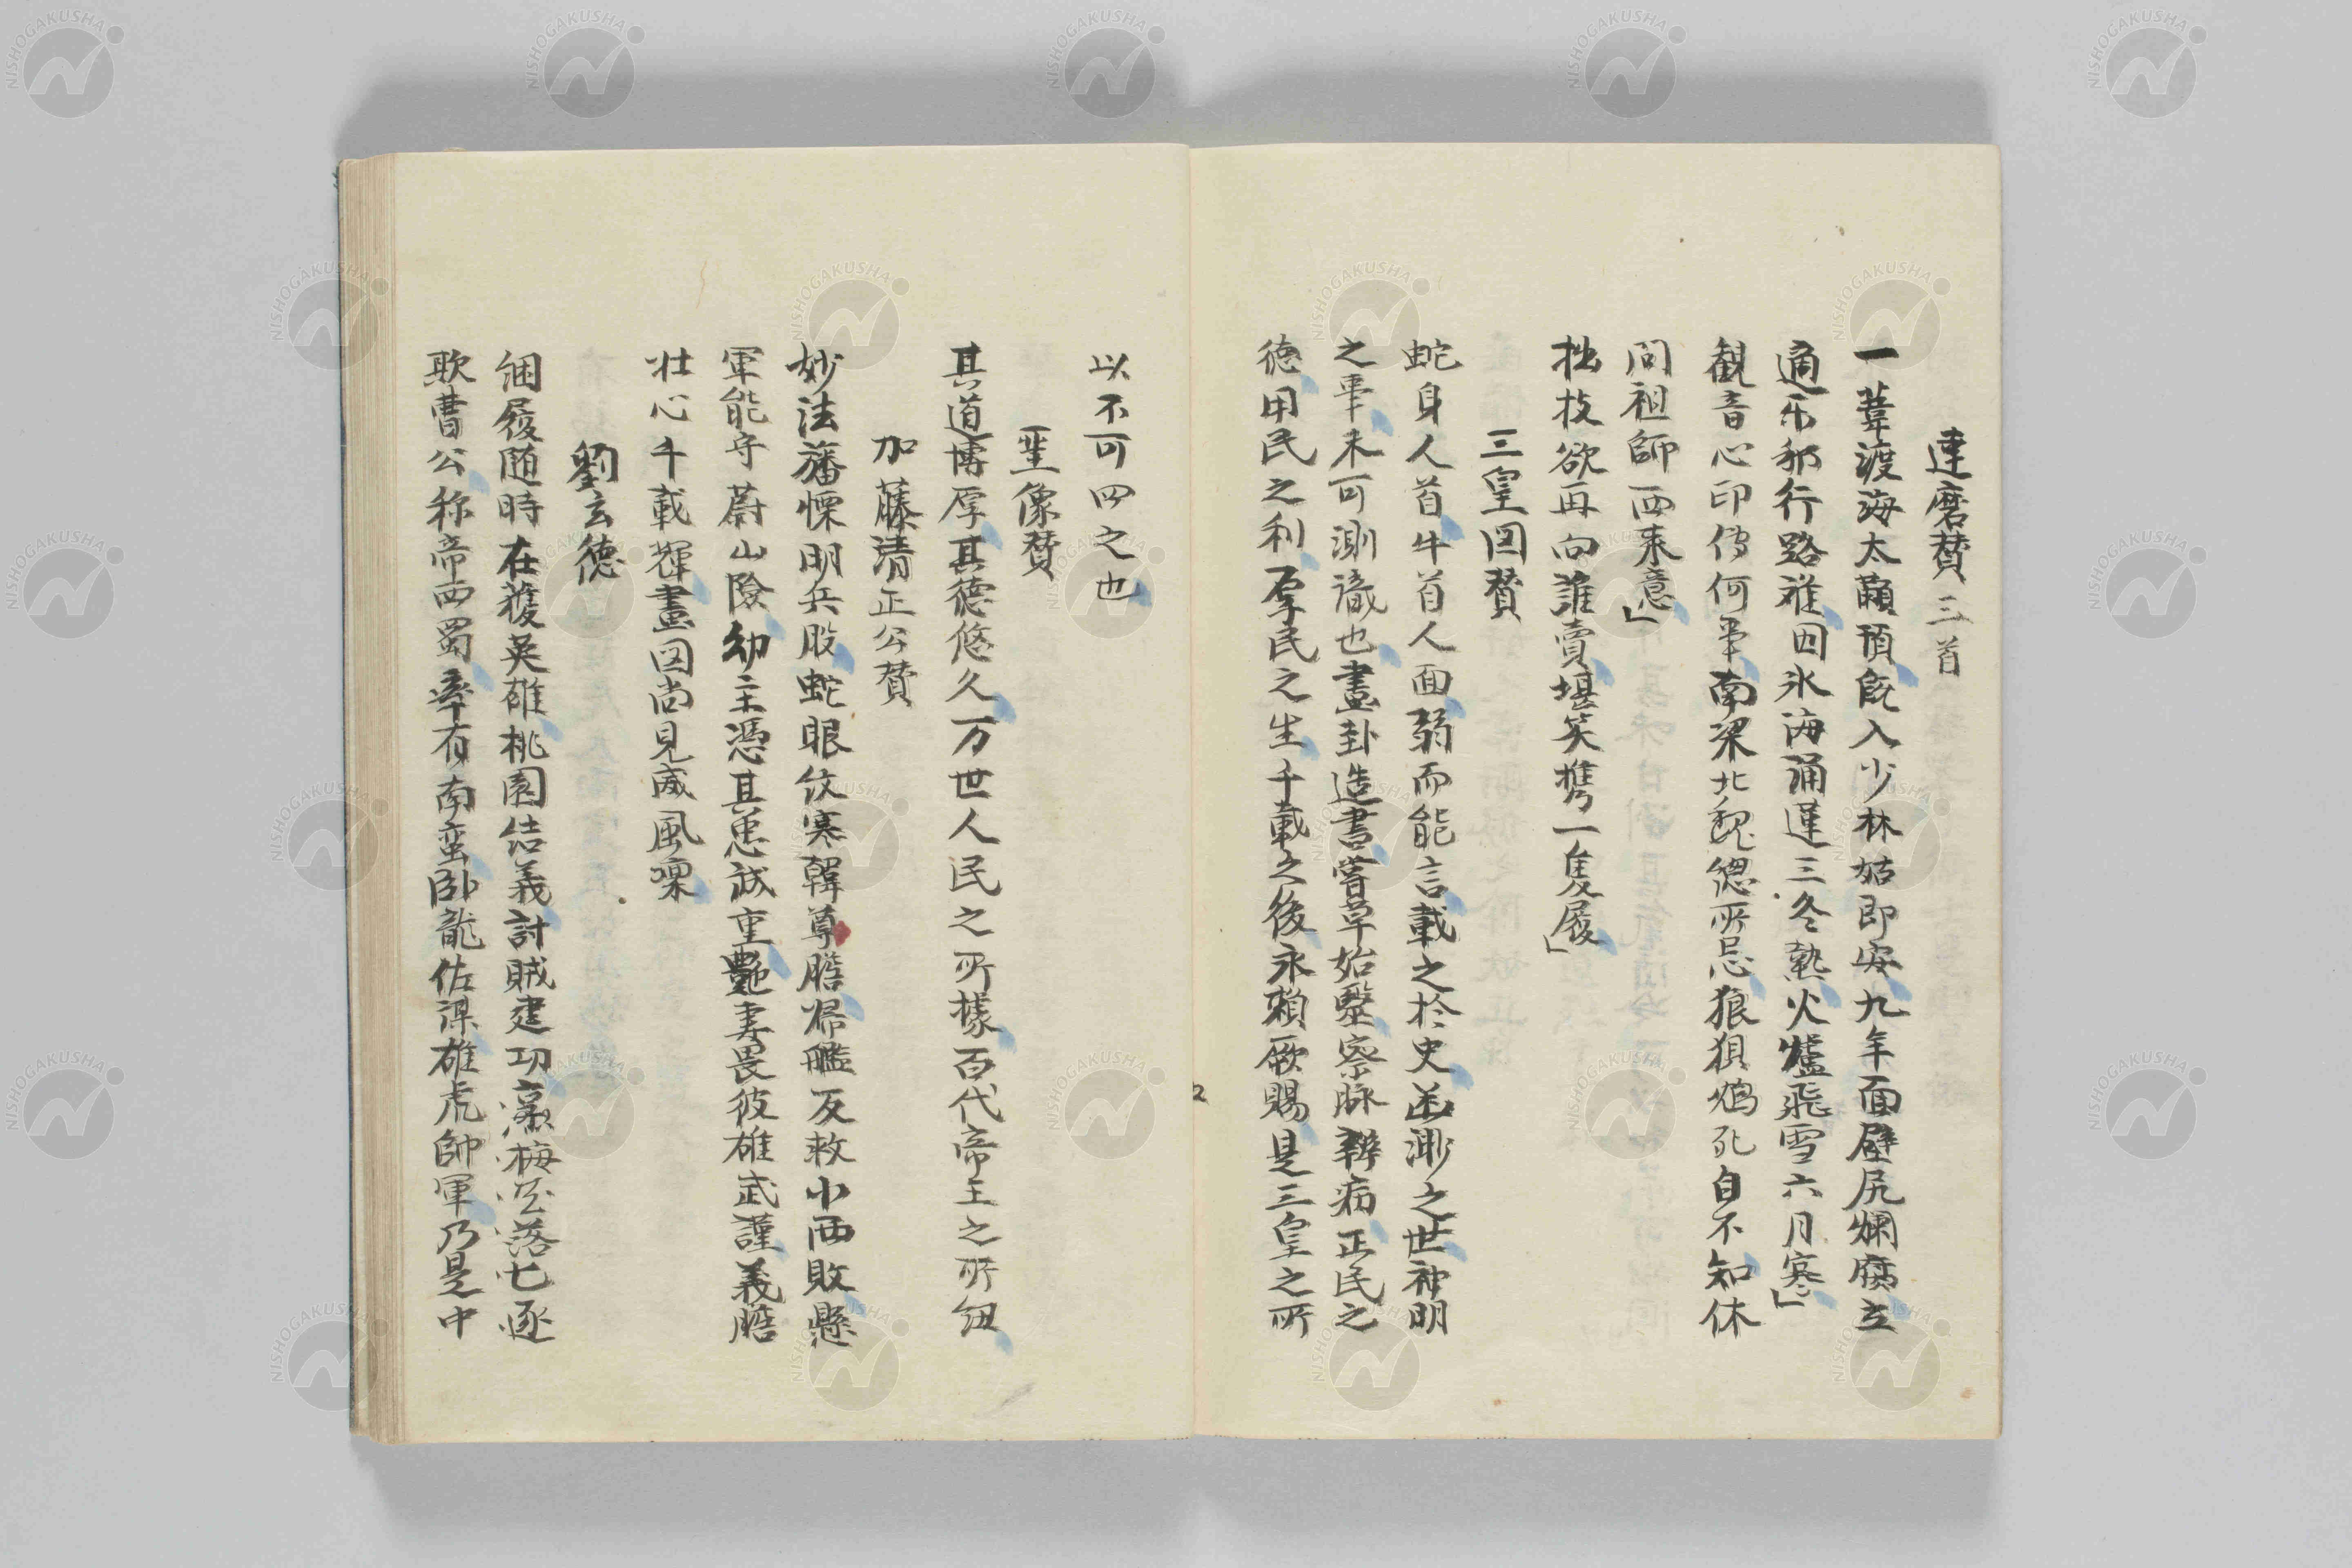 達磨賛三首
一葦渡海太顢頇既入少林姑即安九年面壁尻爛腐立
適示邪行路難因氷海涌連三冬熱火爐飛雪六月寒
観音心印傳何事南梁北魏總所忌狼狽鴆死自不知休
問祖師西来意
拙技欲再向誰賣堪笑携一隻履
三皇図賛
蛇身人首牛首人面弱而能言載之於史出渺之世神明
之事未可測識也畫卦造書嘗草始毉察脉辨病正民之
徳用民之利厚民之生千載之後永頼厥賜是三皇之所
以不可四之也
聖像賛
其道博厚其徳悠久万世人民之所據百代帝王之所師
加藤清正公賛
妙法旛慄明兵股蛇眼紋寒韓尊膽帰艦反救小西敗懸
軍能守蔚山險幼主憑其悪誠重艶妻畏彼雄武謹義膽
壮心千載輝畫図尚見威風凜
劉玄徳
綑履随時在獲英雄桃園結義討賊建功梅落七逐
欺曹公称帝西蜀率有南蛮卧龍佐謀雄虎帥軍乃是中
NISHOGAKUSHA